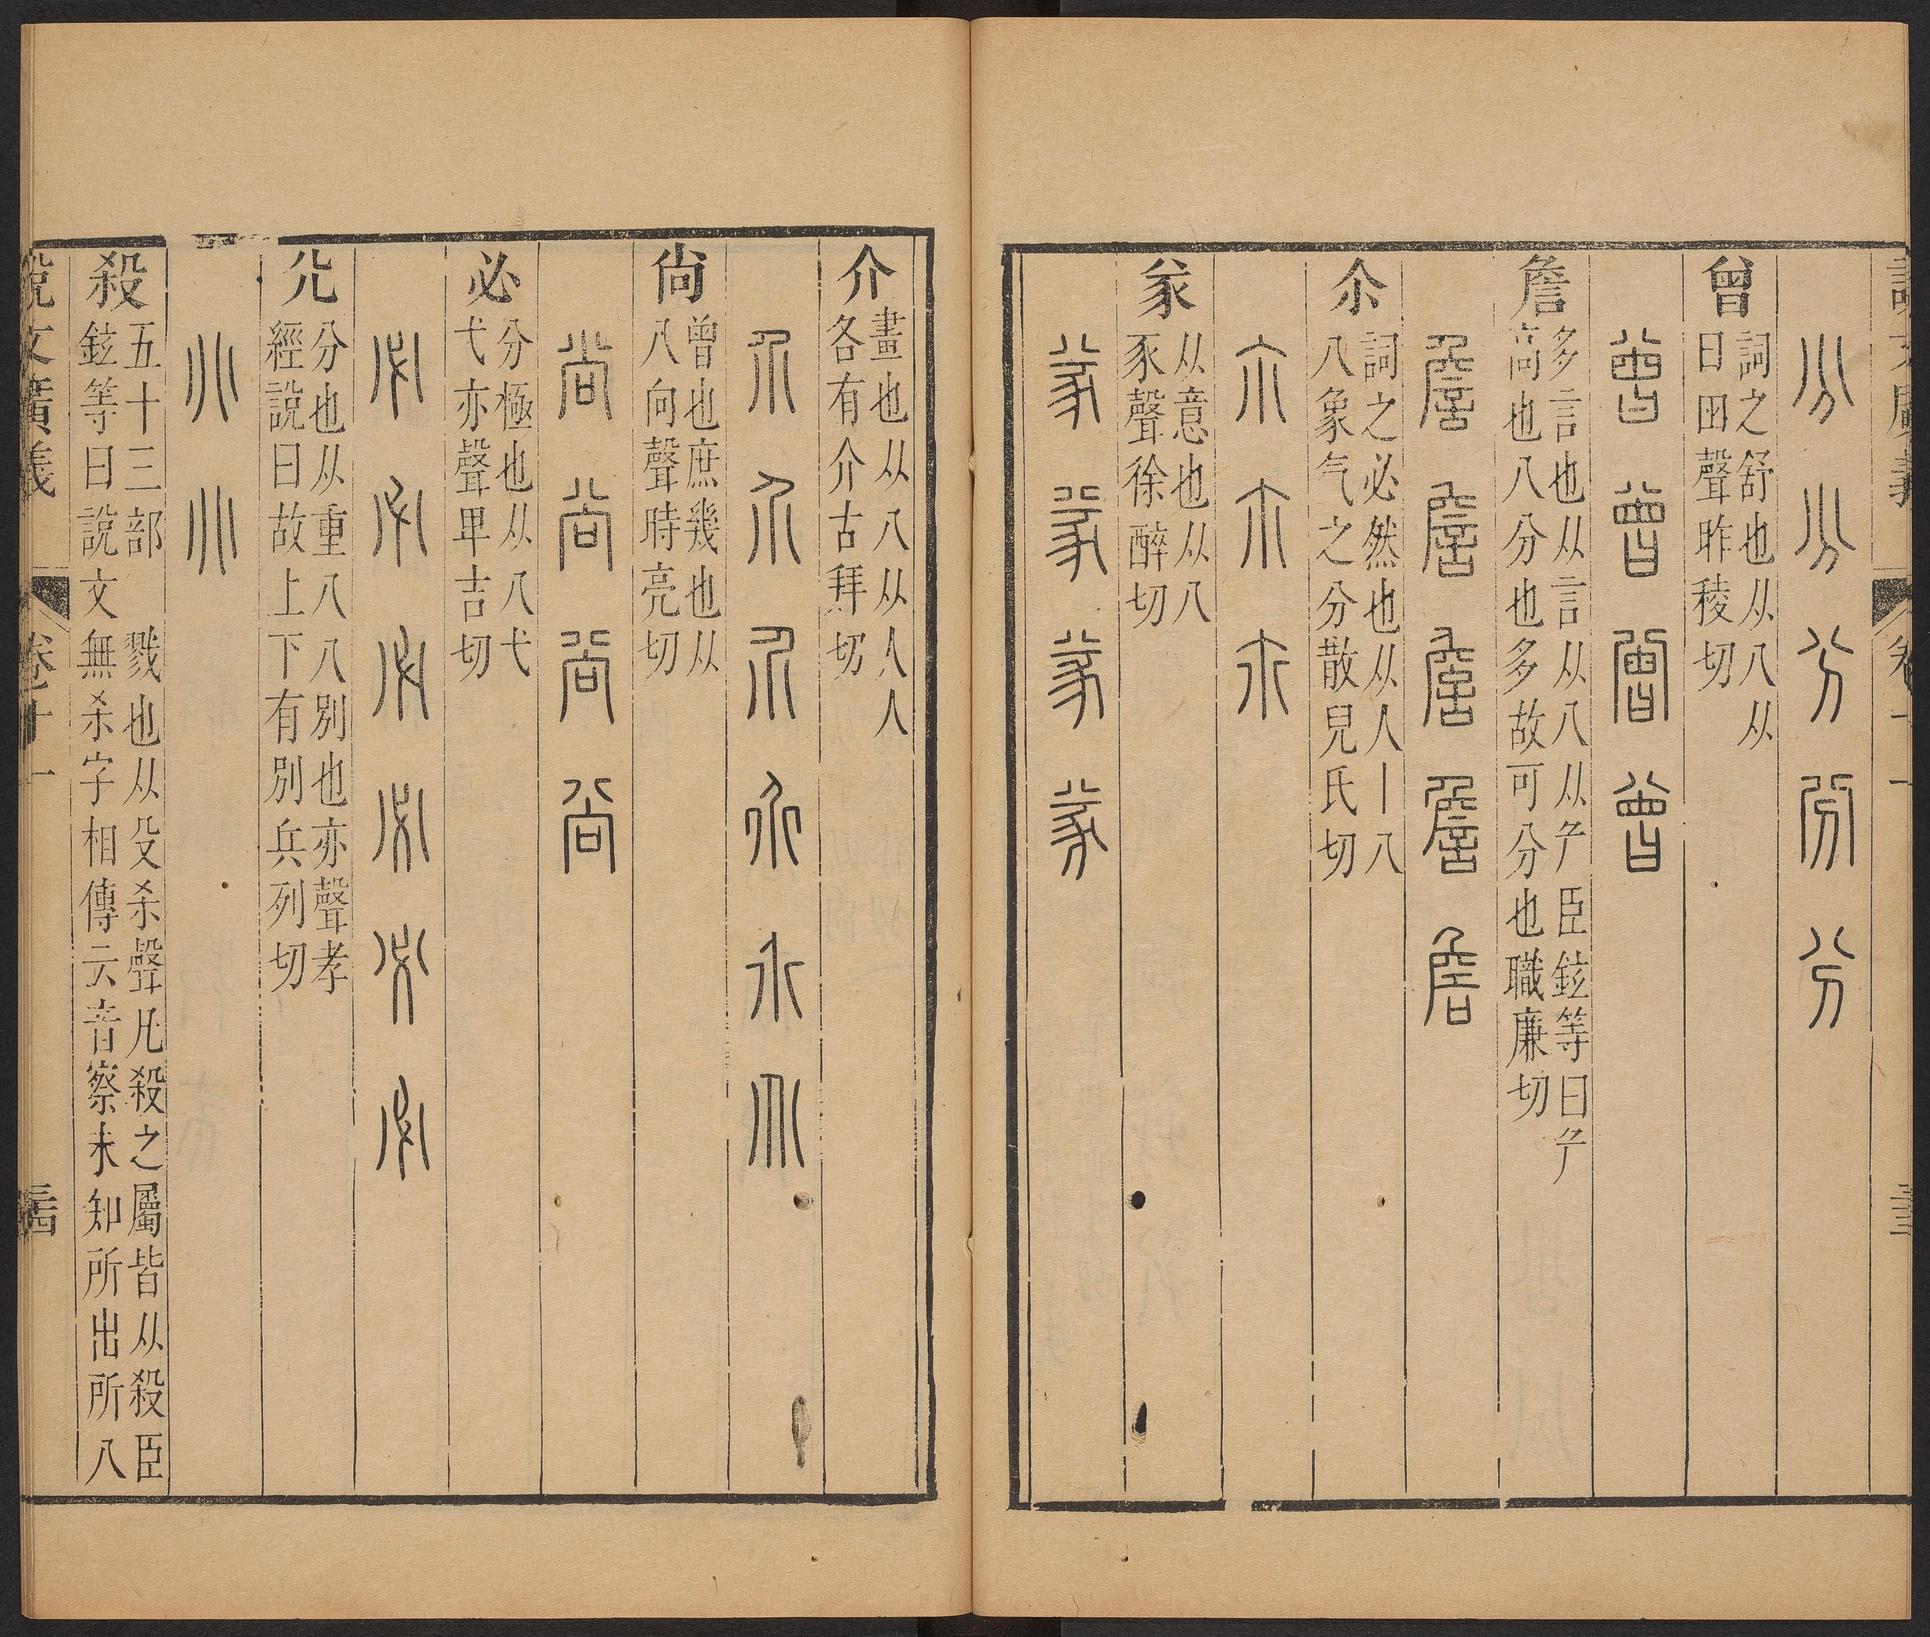 說文廣義 卷十一 三十三
分 分 分 分 分
曾 詞之舒也从八从
曰囪聲昨稜切
曾 曾 曾 曾
詹 多言也从言从八从厃臣鉉等曰厃
高也八分也多故可分也職廉切
詹 詹 詹 詹 詹
尒 詞之必然也从人丨八
八象气之分散兒氏切
尒 尒 尒
㒸 从意也从八
豕聲徐醉切
㒸 㒸 㒸 㒸
介 畫也从八从人人
各有介古拜切
介 介 介 介 介 介
尚 曾也庶幾也从
八向聲時亮切
尚 尚 尚 尚
必 分極也从八弋
弋亦聲畢吉切
必 必 必 必 必 必
𠔁 分也从重八八別也亦聲孝
經說曰故上下有別兵列切
𠔁 𠔁
殺 五十三部 戮也从殳杀聲凡殺之屬皆从殺臣
鉉等曰說文無杀字相傳云音察未知所出所八
說文廣義 卷十一 三十四